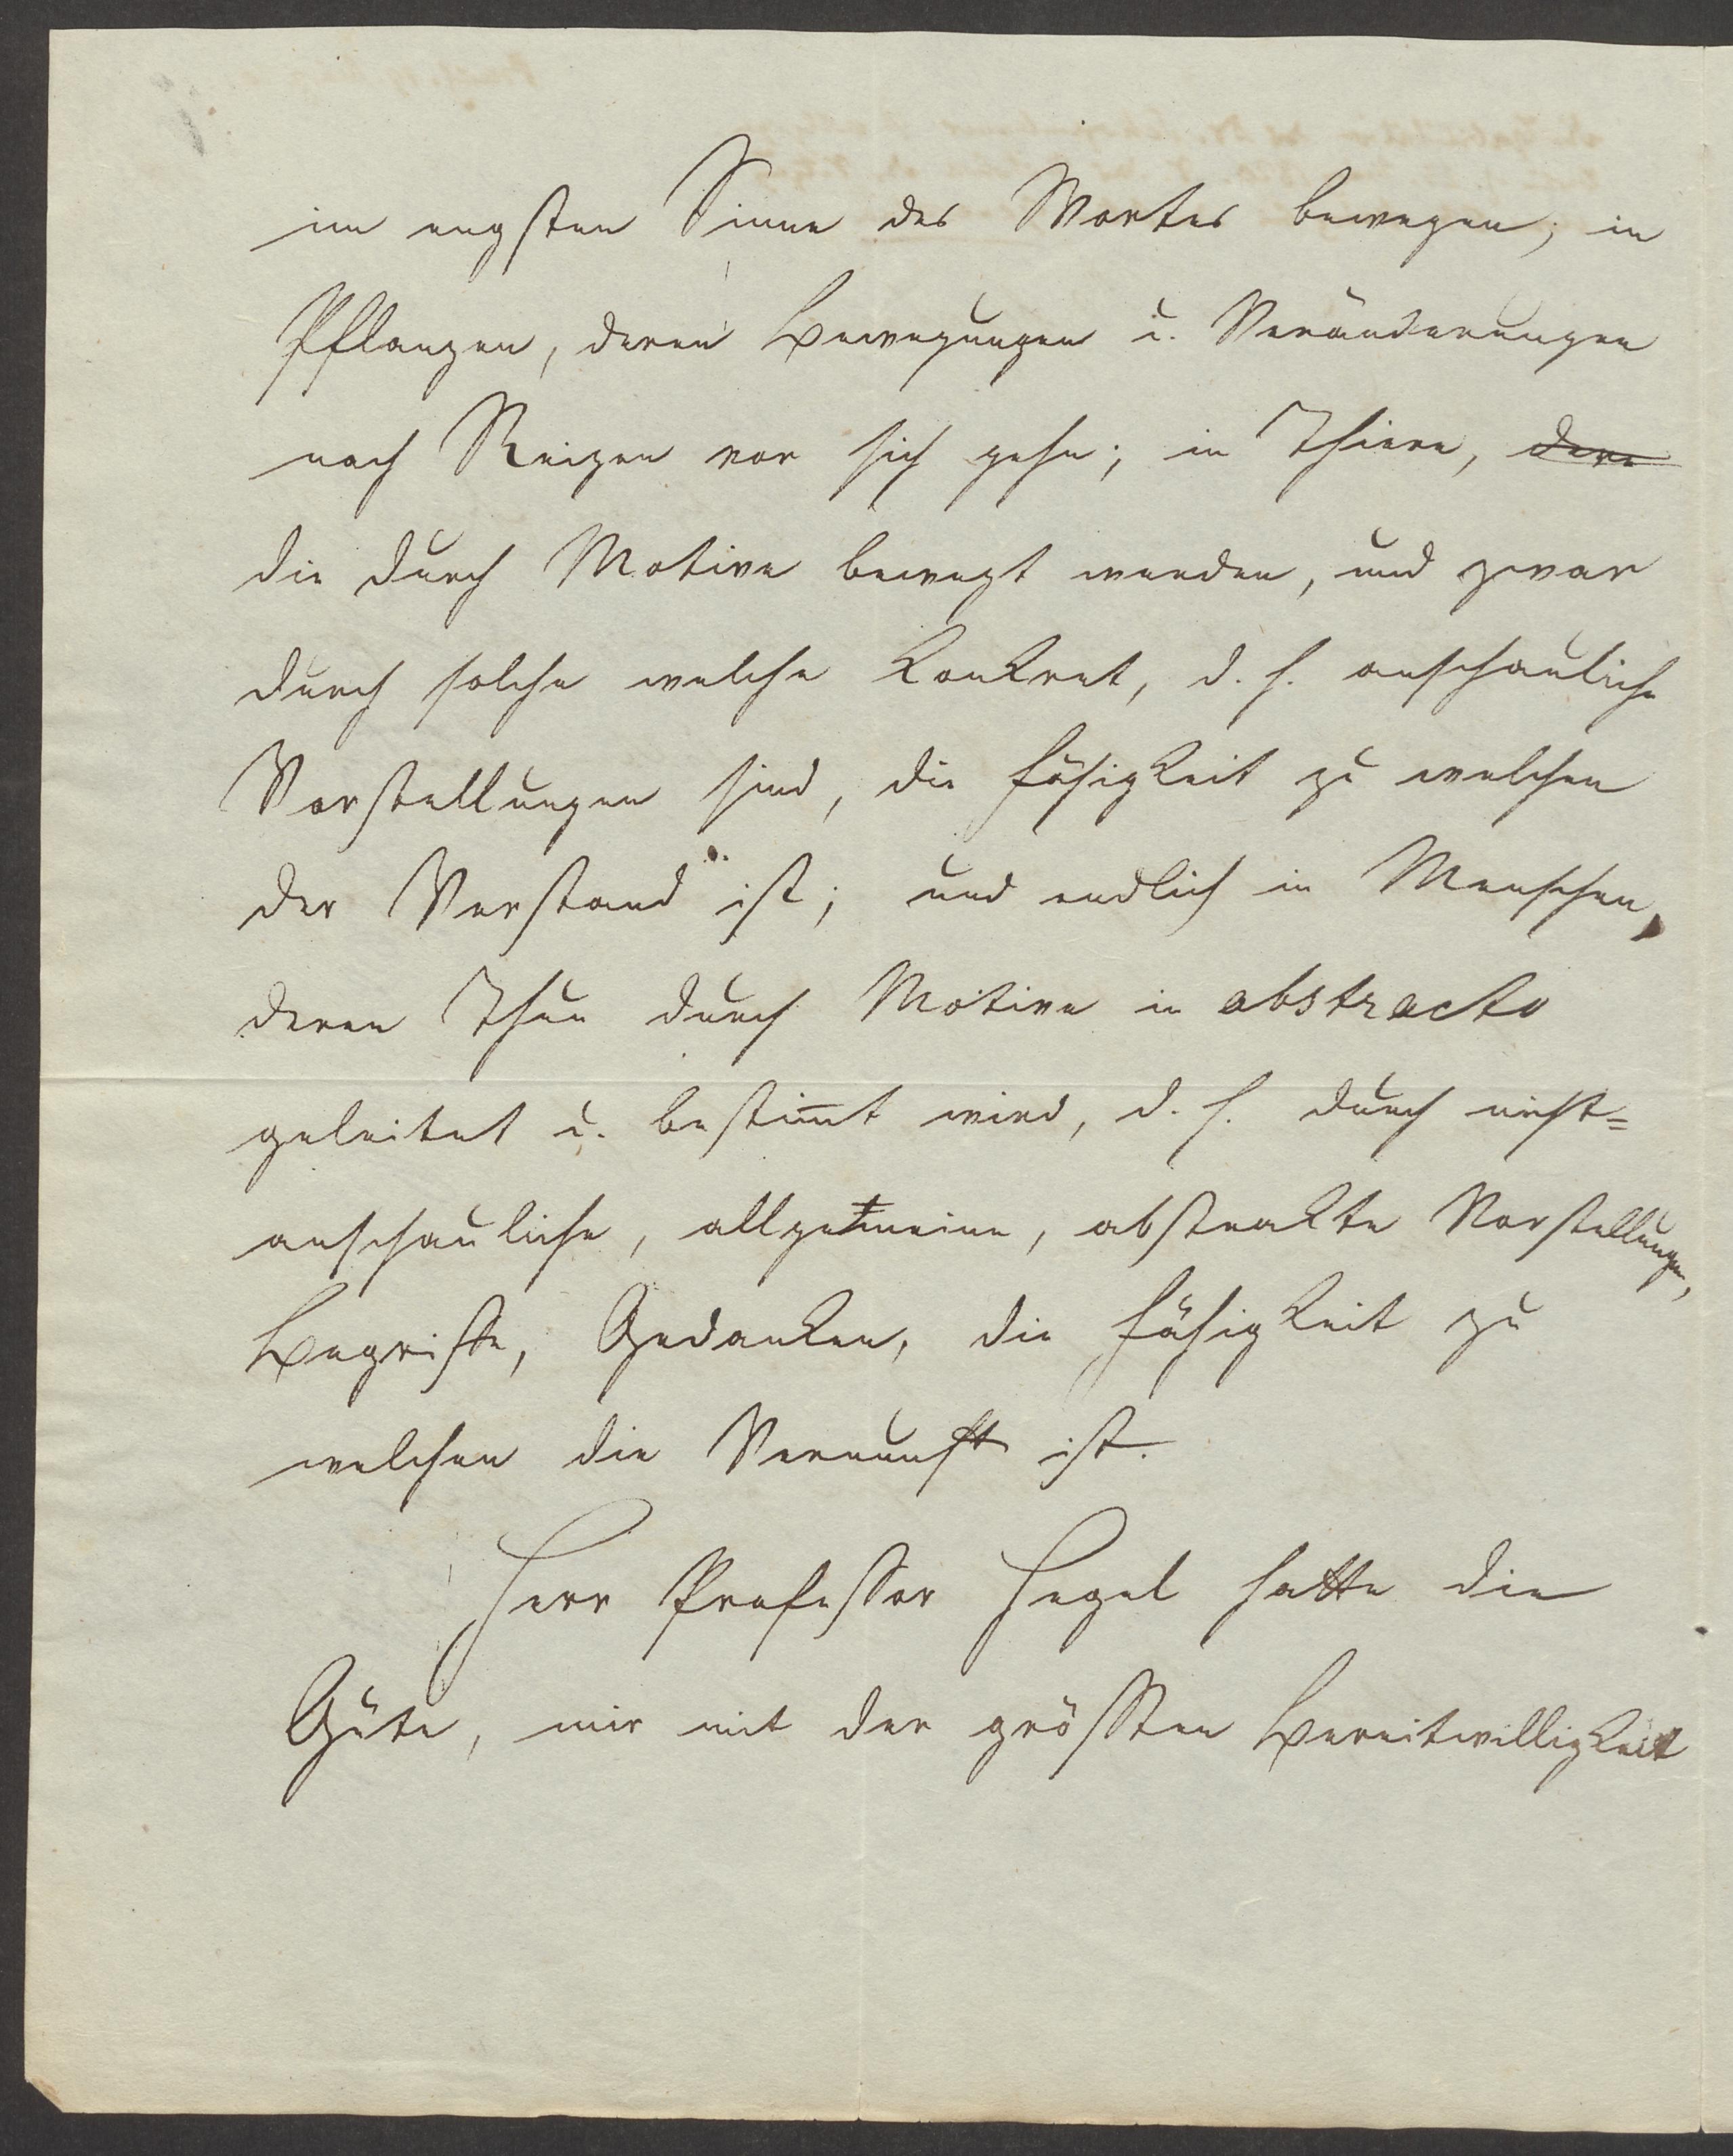 im engsten Sinne des Wortes bewegen; in
Pflanzen, deren Bewegungen u. Veränderungen
nach Reizen vor sich gehn; in Thiere, dere
die durch Motive bewegt werden, und zwar
durch solche welche konkret, d. h. anschauliche
Vorstellungen sind, die Fähigkeit zu welchen
der Verstand ist; und endlich in Menschen,
deren Thun durch Motive in abstracto
geleitet u. bestim̅t wird, d. h. durch nicht=
anschauliche, allgemeine, abstrakte Vorstellungen,
Begriffe, Gedanken, die Fähigkeit zu
welchen die Vernunft ist.
Herr Professor Hegel hatte die
Güte, mir mit der größten Bereitwilligkeit